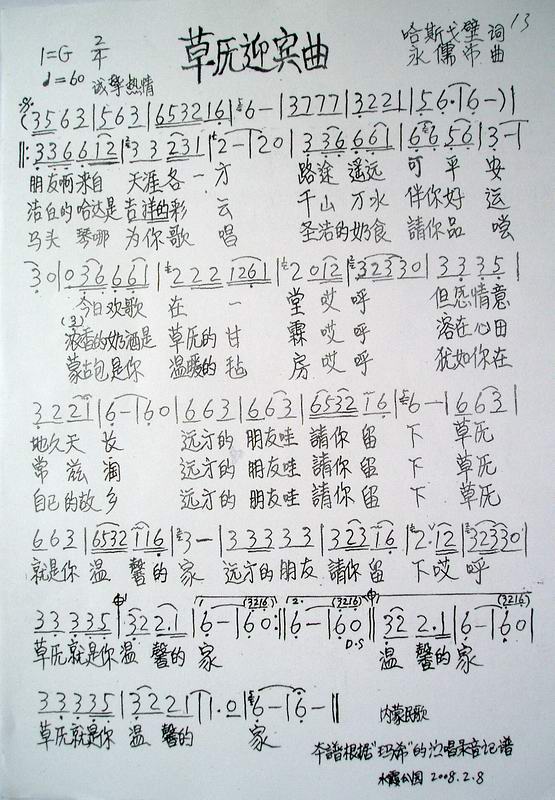 13
草原迎宾曲
1=G 2/4
♩=60 诚挚热情
哈斯戈壁 词
永儒布 曲
(3563|563|6532 16|6-|3777|3221|56·|6-)|
‖:336612|33231|2-|20|336661|6656|3-|
朋友啊来自 天涯各一方 路途遥远 可平安
洁白的哈达是吉祥的彩云 千山万水 伴你好运
马头琴哪 为你歌唱 圣洁的奶食 請你品嚐
30|036661|2221261|2012|32330|3335|
今日欢歌 在一堂哎呼 但愿情意
(3)
浓香的奶酒是 草原的甘霖哎呼 溶在心田
蒙古包是你 温暖的毡房哎呼 犹如你在
3221|6-|60|663|663|653216|6-|663|
地久天长 远方的 朋友哇 請你留下 草原
常滋润 远方的 朋友哇 請你留下 草原
自己的故乡 远方的 朋友哇 請你留下 草原
663|6532116|3-|33333|32316|2·12|32330|
就是你 温馨的家 远方的朋友 請你留下哎呼
33335|322·1|6-|60:‖6-|60‖322·1|6-|60|
(3216) (3216) (3216)
1. 2.
D·S
草原就是你温馨的家 温馨的家
33335|3221|1·0|6-|6-‖
草原就是你 温馨的 家
内蒙民歌
本譜根据“玛希”的演唱录音记谱
水霞公园 2008.2.8